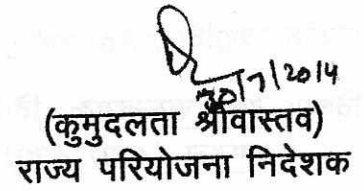 30/7/2014
(कुमुदलता श्रीवास्तव)
राज्य परियोजना निदेशक